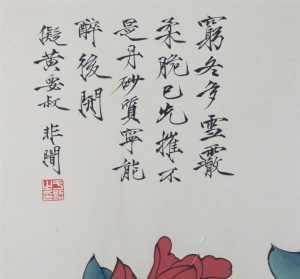 窮冬多雪霰
柔脆已先摧不
是丹砂質寧能
醉後開
擬黃要叔 非闇